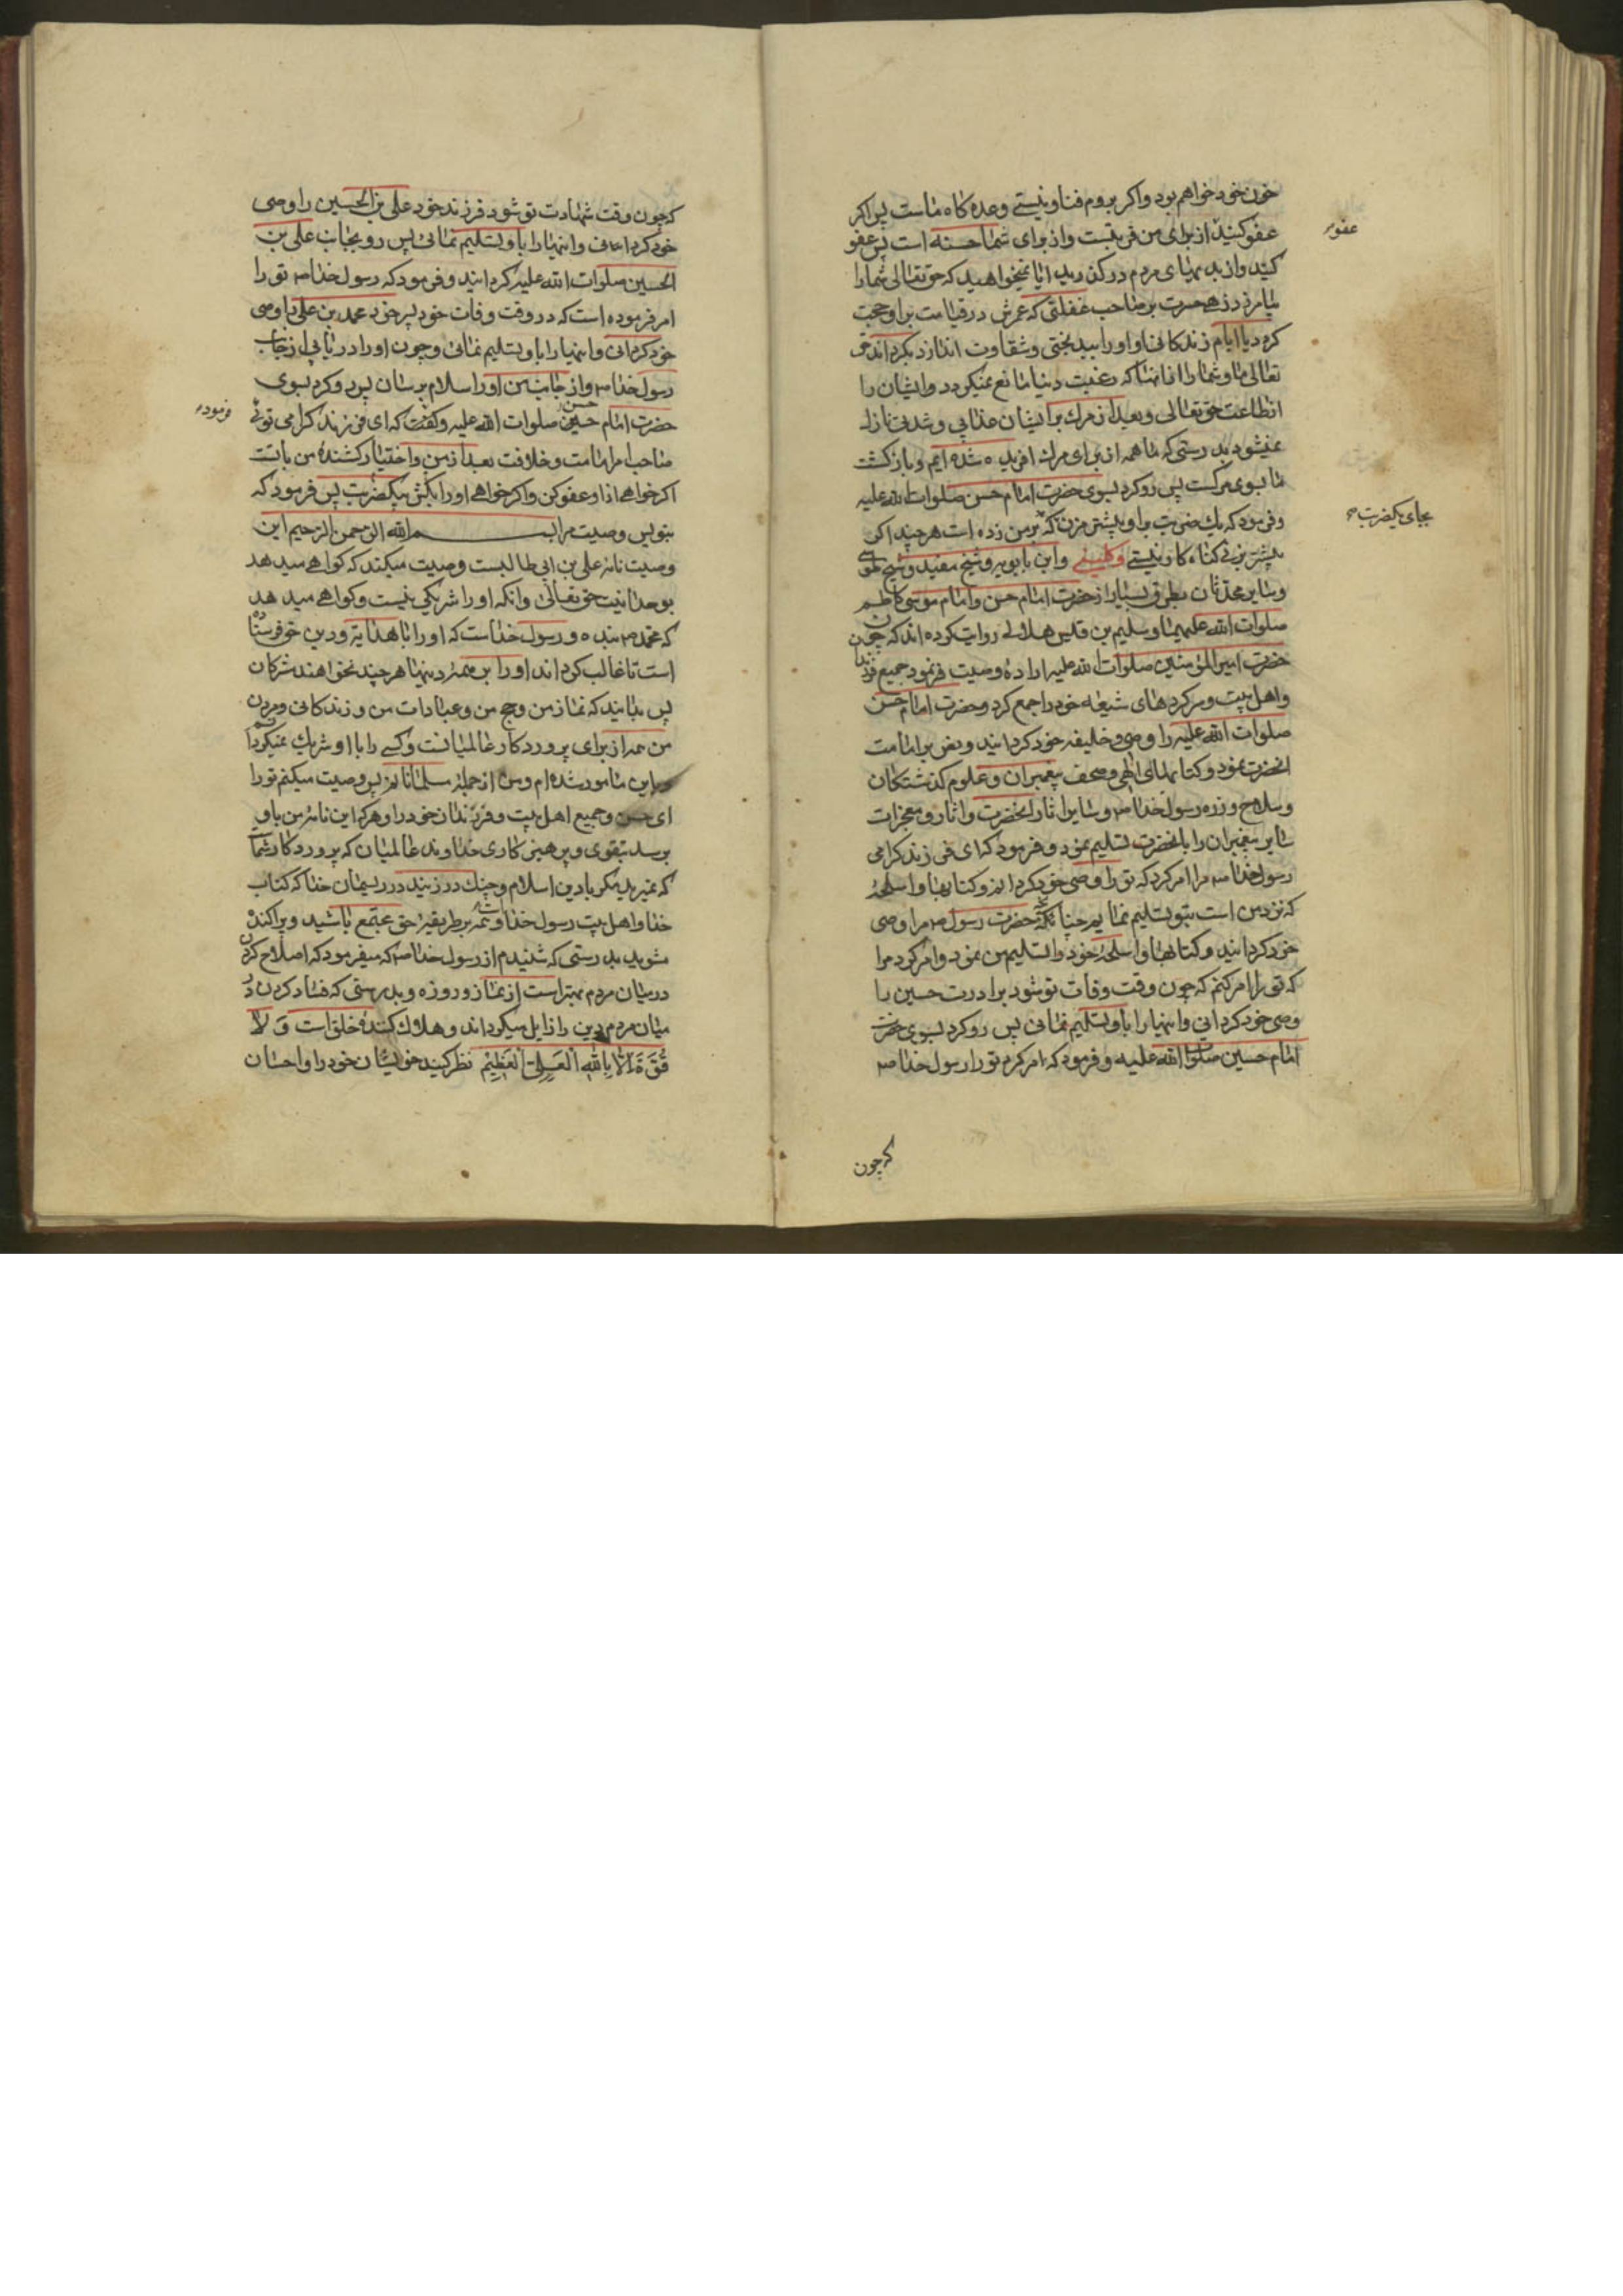 خون خود خواهم بود و اکر بروم فنا و نیستی وعده کاه ماست پس اکر
عفو کنید از برای من قربتست و از برای شما حسنه است پس عفو
عفو
کنید و از بدیهای مردم درکذرید ایا نمیخواهید که حق تعالی شما را
بیامرزد زهی حسرت بر صاحب غفلتی که عمرش در قیامت بر او حجت
کردد یا ایام زندکانی او او را ببدبختی و شقاوت اندازد بکرداند حق
تعالی ما و شما را از انها که رغبت دنیا مانع نمیکردد ایشان را
از طاعت حق تعالی و بعد از مرك بر ایشان عذابی و شدتی نازل
نمیشود بدرستی که ما همه از برای مرك افریده شده ایم و بازکشت
ما بسوی مرکست پس رو کرد بسوی حضرت امام حسن صلوات الله علیه
و فرمود که یك ضربت بر او بیشتر مزن که بر من زده است هر چند اکر
بجای یکضربت
بیشتر بزنی کناه کار نیستی و کلینی و ابن بابویه و شیخ مفید و شیخ طوسی
و سایر محدثان بطرق بسیار از حضرت امام حسن و امام موسی کاظم
صلوات الله علیهما و سلیم بن قیس هلالی روایت کرده اند که چون
حضرت امیر المؤمنین صلوات الله علیه اراده وصیت فرمود جمیع فرزندان
و اهل بیت و سرکرده های شیعه خود را جمع کرد و حضرت امام حسن
صلوات الله علیه را وصی و خلیفه خود کردانید و نص بر امامت
انحضرت نمود و کتابهای الهی و صحف پیغمبران و علوم کذشتکان
و سلاح و زره رسول خدا ص و سایر اثار انحضرت و اثار و معجزات
سایر پیغمبران را بانحضرت تسلیم نمود و فرمود که ای فرزند کرامی
رسول خدا ص مرا امر کرد که تو را وصی خود کردانم و کتابها و اسلحهٔ
که نزد من است بتو تسلیم نمایم چنانکه حضرت رسول ص مرا وصی
خود کردانید و کتابها و اسلحهٔ خود را تسلیم من نمود و امر کرد مرا
که تو را امر کنم که چون وقت وفات تو شود برادرت حسین را
وصی خود کردانی و اینها را باو تسلیم نمائی پس رو کرد بسوی حضرت
امام حسین صلوات الله علیه و فرمود که امر کرد تو را رسول خدا ص
که چون
که چون وقت شهادت تو شود فرزند خود علی بن الحسین را وصی
خود کردانی و اینها را باو تسلیم نمائی پس رو بجناب علی بن
الحسین صلوات الله علیه کردانید و فرمود که رسول خدا ص تو را
امر فرموده است که در وقت وفات خود پسر خود محمد بن علی را وصی
خود کردانی و اینها را باو تسلیم نمائی و چون او را دریابی از جانب
رسول خدا ص و از جانب من او را سلام برسان پس رو کرد بسوی
حضرت امام حسین حسن صلوات الله علیه و کفت که ای فرزند کرامی توئی
فرموده
صاحب امر امامت و خلافت بعد از من و اختیار کشندهٔ من با تست
اکر خواهی از او عفو کن و اکر خواهی او را بکش بیکضربت پس فرمود که
بنویس وصیت مرا بسم الله الرحمن الرحیم این
وصیت نامه علی بن ابی طالبست وصیت میکند که کواهی میدهد
بوحدانیت حق تعالی و انکه او را شریکی نیست و کواهی میدهد
که محمد ص بنده و رسول خداست که او را با هدایة و دین حق فرستاده
است تا غالب کرداند او را بر همه دینها هر چند نخواهند مشرکان
پس بدانید که نماز من و حج من و عبادات من و زندکانی و مردن
من همه از برای پروردکار عالمیانست و کسی را با او شریك نمیکردانم
و باین مامور شده ام و من از جملهٔ مسلمانانم پس وصیت میکنم تو را
ای حسن و جمیع اهل بیت و فرزندان خود را و هر که این نامهٔ من باو
برسد بتقوی و پرهیزکاری خداوند عالمیان که پروردکار شما
که نمیرید مکر با دین اسلام و چنك در زنید در ریسمان خدا که کتاب
خدا و اهل بیت رسول خدا و ائمه بر طریقهٔ حق مجتمع باشید و پراکنده
مشوید بدرستی که شنیدم از رسول خدا ص که میفرمود که اصلاح کردن
در میان مردم بهتر است از نماز و روزه و بدرستی که فساد کردن در
میان مردم دین را زایل میکرداند و هلاك کنندهٔ خلق است وَ لا
قُوَّةَ اِلّا بِاللهِ العَلِیِّ العَظِیْمِ نظر کنید خویشان خود را و احسان